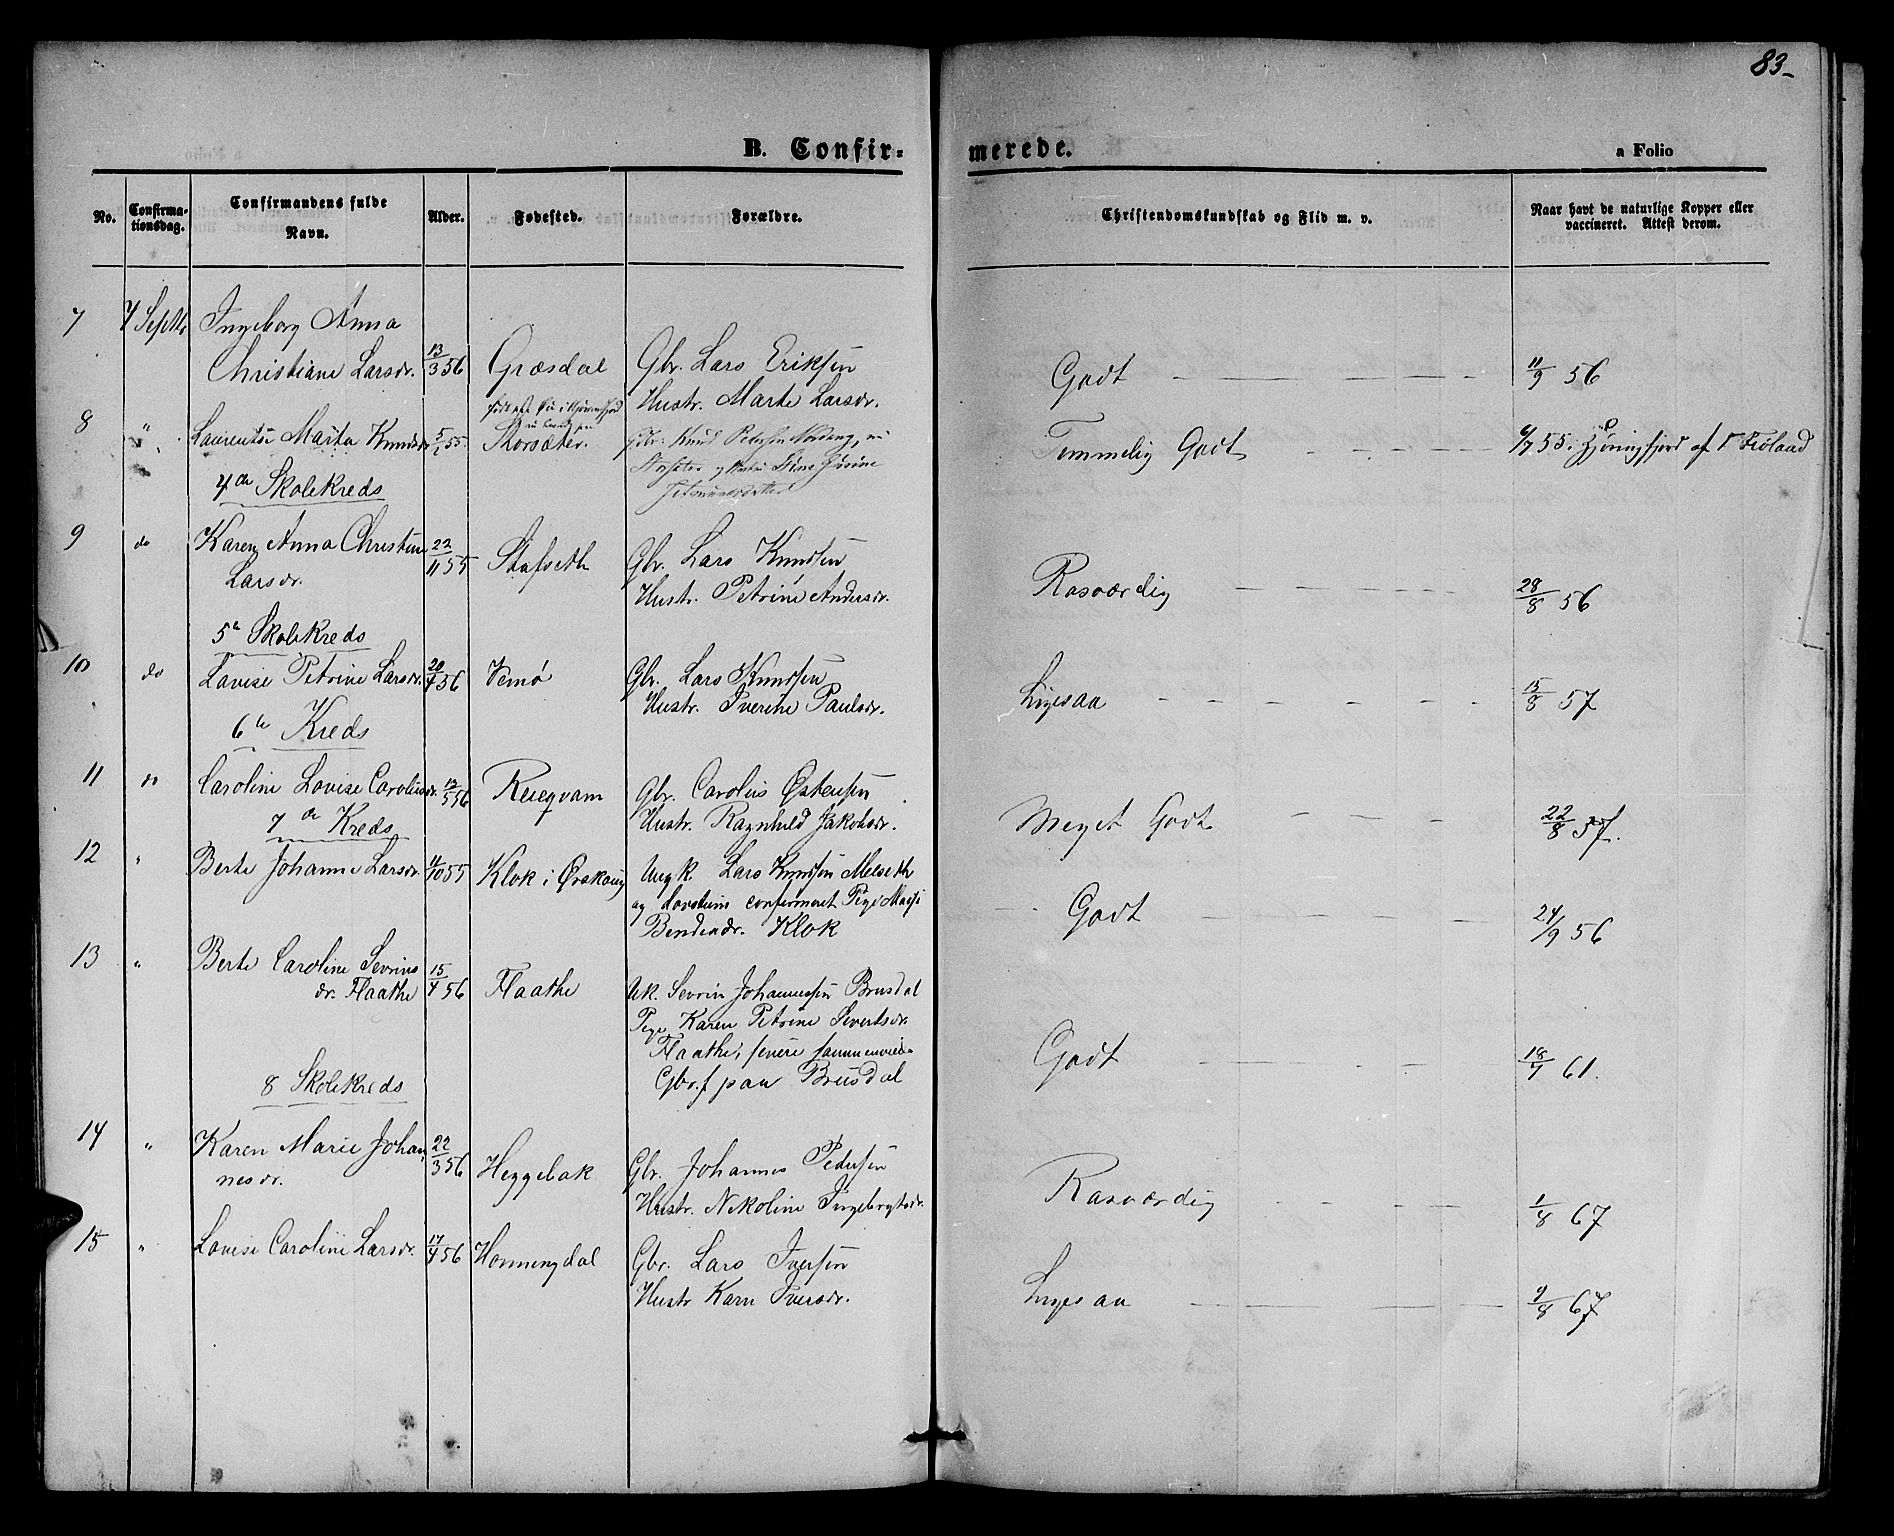 83
B. Confir-
merede.
a Folio
No.
Confirma-
tionsdag.
Confirmandens fulde
Navn.
Alder.
Fødested.
Forældre.
Christendomskundskab og Flid m. v.
Naar havt de naturlige Kopper eller
vaccineret. Attest derom.
7 7 Septbr Ingeborg Anna
Christiane Larsdr. 13/3 56 Græsdal Gbr. Lars Eriksen
Hustr. Marte Larsdr.
Godt 11/9 56
8 " Laurentse Marta Knudsdr 5/1 55 Storsæter. Knud Petersen
Temmelig Godt 6/7 55. af
4de Skolekreds
9 do Karen Anna Christine 22/11 55 Stafseth Gbr. Lars Knudsen
Larsdr. Hustr. Petrine Andersdr.
Rosværdig 28/8 56
5te Skolekreds
10 do Lovise Petrine Larsdr. 20/4 56 Vemø Gbr. Lars Knudsen
Hustr. Iverine Paulsdr.
Ligesaa 15/8 57
6te Kreds
11 do Caroline Lovise Carolusdr. 12/5 56 Reieqvam Gbr. Carolus Østensen
Hustr. Ragnhild Jakobsdr.
Meget Godt 22/8 57.
7de Kreds
12 " Berte Johanne Larsdr. 4/10 55 Klok i Ørskoug Ungk. Lars Knudsen Melseth
og confirmeret Pige
Bendixdr. Klok
Godt 24/9 56
13 " Berte Caroline Sevrins
dr. Flaathe 15/4 56 Flaathe Uk. Sevrin Johannessen Brusdal
Pige Karen Petrine Sivertsdr.
Flaathe, senere sammenviede
Gbr.f. paa Brusdal
Godt 18/7 61.
8 Skolekreds
14 " Karen Marie Johan
nesdr. 22/3 56 Heggebak Gbr. Johannes Pedersen
Hustr. Nikoline Ingebrigtsdr.
Rosværdig 1/8 67
15 " Lovise Caroline Larsdr. 17/4 56 Honningdal Gbr. Lars Iversen
Hustr Karn Iversdr.
Ligesaa 9/8 67